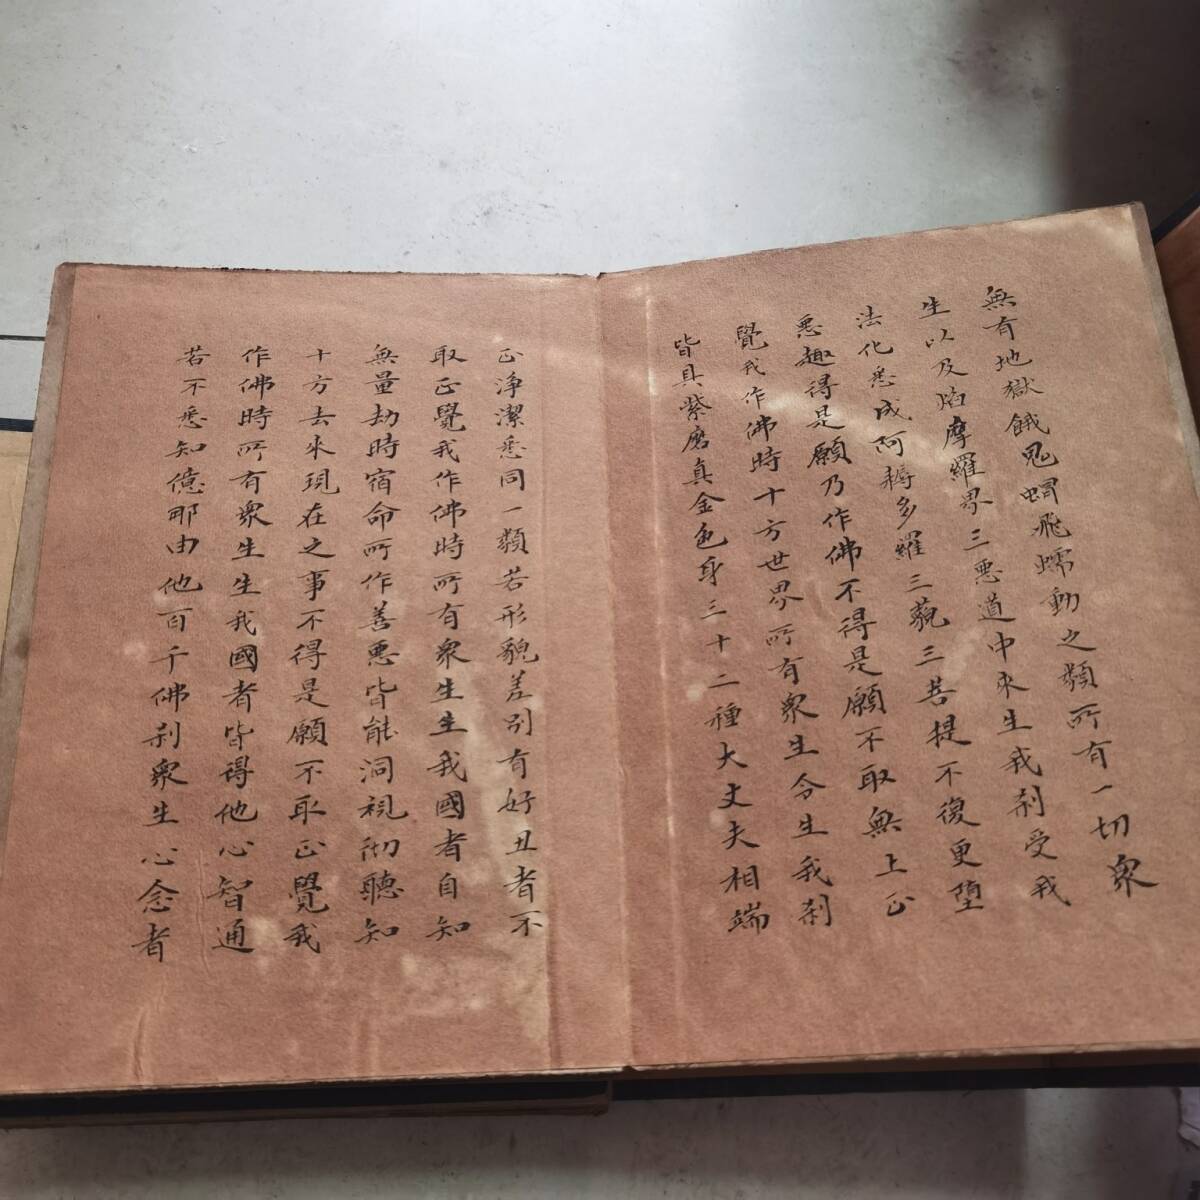 無有地獄餓鬼蜎飛蠕動之類所有一切衆
生以及焰摩羅界三惡道中來生我刹受我
法化悉成阿耨多羅三藐三菩提不復更墮
惡趣得是願乃作佛不得是願不取無上正
覺我作佛時十方世界所有衆生令生我刹
皆具紫磨真金色身三十二種大丈夫相端
正淨潔悉同一類若形貌差別有好丑者不
取正覺我作佛時所有衆生生我國者自知
無量劫時宿命所作善惡皆能洞視彻聽知
十方去來現在之事不得是願不取正覺我
作佛時所有衆生生我國者皆得他心智通
若不悉知億那由他百千佛刹衆生心念者